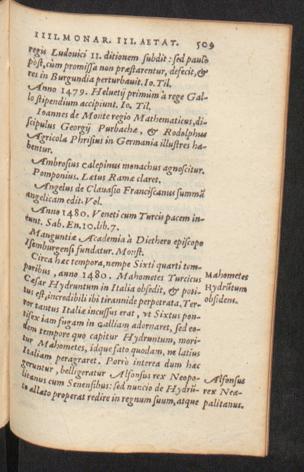 IIII. MONAR. III. AETAT. 509
regis Ludouici 11. ditionem subdit: sed paulo
pòst, cùm promissa non præstarentur, defecit, &
res in Burgundia perturbauit. Io. Til.
Anno 1479. Heluetij primùm à rege Gal-
lo stipendium accipiunt. Io. Til.
Ioannes de Monte regio Mathematicus, di-
scipulus Georgij Purbachæ, & Rodolphus
Agricola Phrisius in Germania illustres ha-
bentur.
Ambrosius calepinus monachus agnoscitur.
Pomponius. Lætus Romæ claret.
Angelus de Clauasio Franciscanus summā
angelicam edit. Vol.
Anno 1480. Veneti cum Turcis pacem in-
eunt. Sab. En. 10. lib. 7.
Mauguntiæ Academia à Diethero episcopo
Isomburgensi fundatur. Monst.
Circa hæc tempora, nempe Sixti quarti tem-
poribus, anno 1480. Mahometes Turcicus
Cæsar Hydruntum in Italia obsedit, & poti-
tus est, incredibili ibi tirannide perpetrata. Ter-
ror tantus Italiæ incussus erat, vt Sixtus pon-
tifex iam fugam in Galliam adornaret, sed eo-
dem tempore quo capitur Hydruntum, mori-
tur Mahometes, idque fato quodam, ne latius
Italiam peragraret. Porrò interea dum hæc
geruntur, belligeratur Alfonsus rex Neopo-
litanus cum Senensibus: sed nuncio de Hydrū-
to allato properat redire in regnum suum, atque
Mahometes
Hydrūtum
obsidens.
Alfonsus
rex Nea-
politanus.